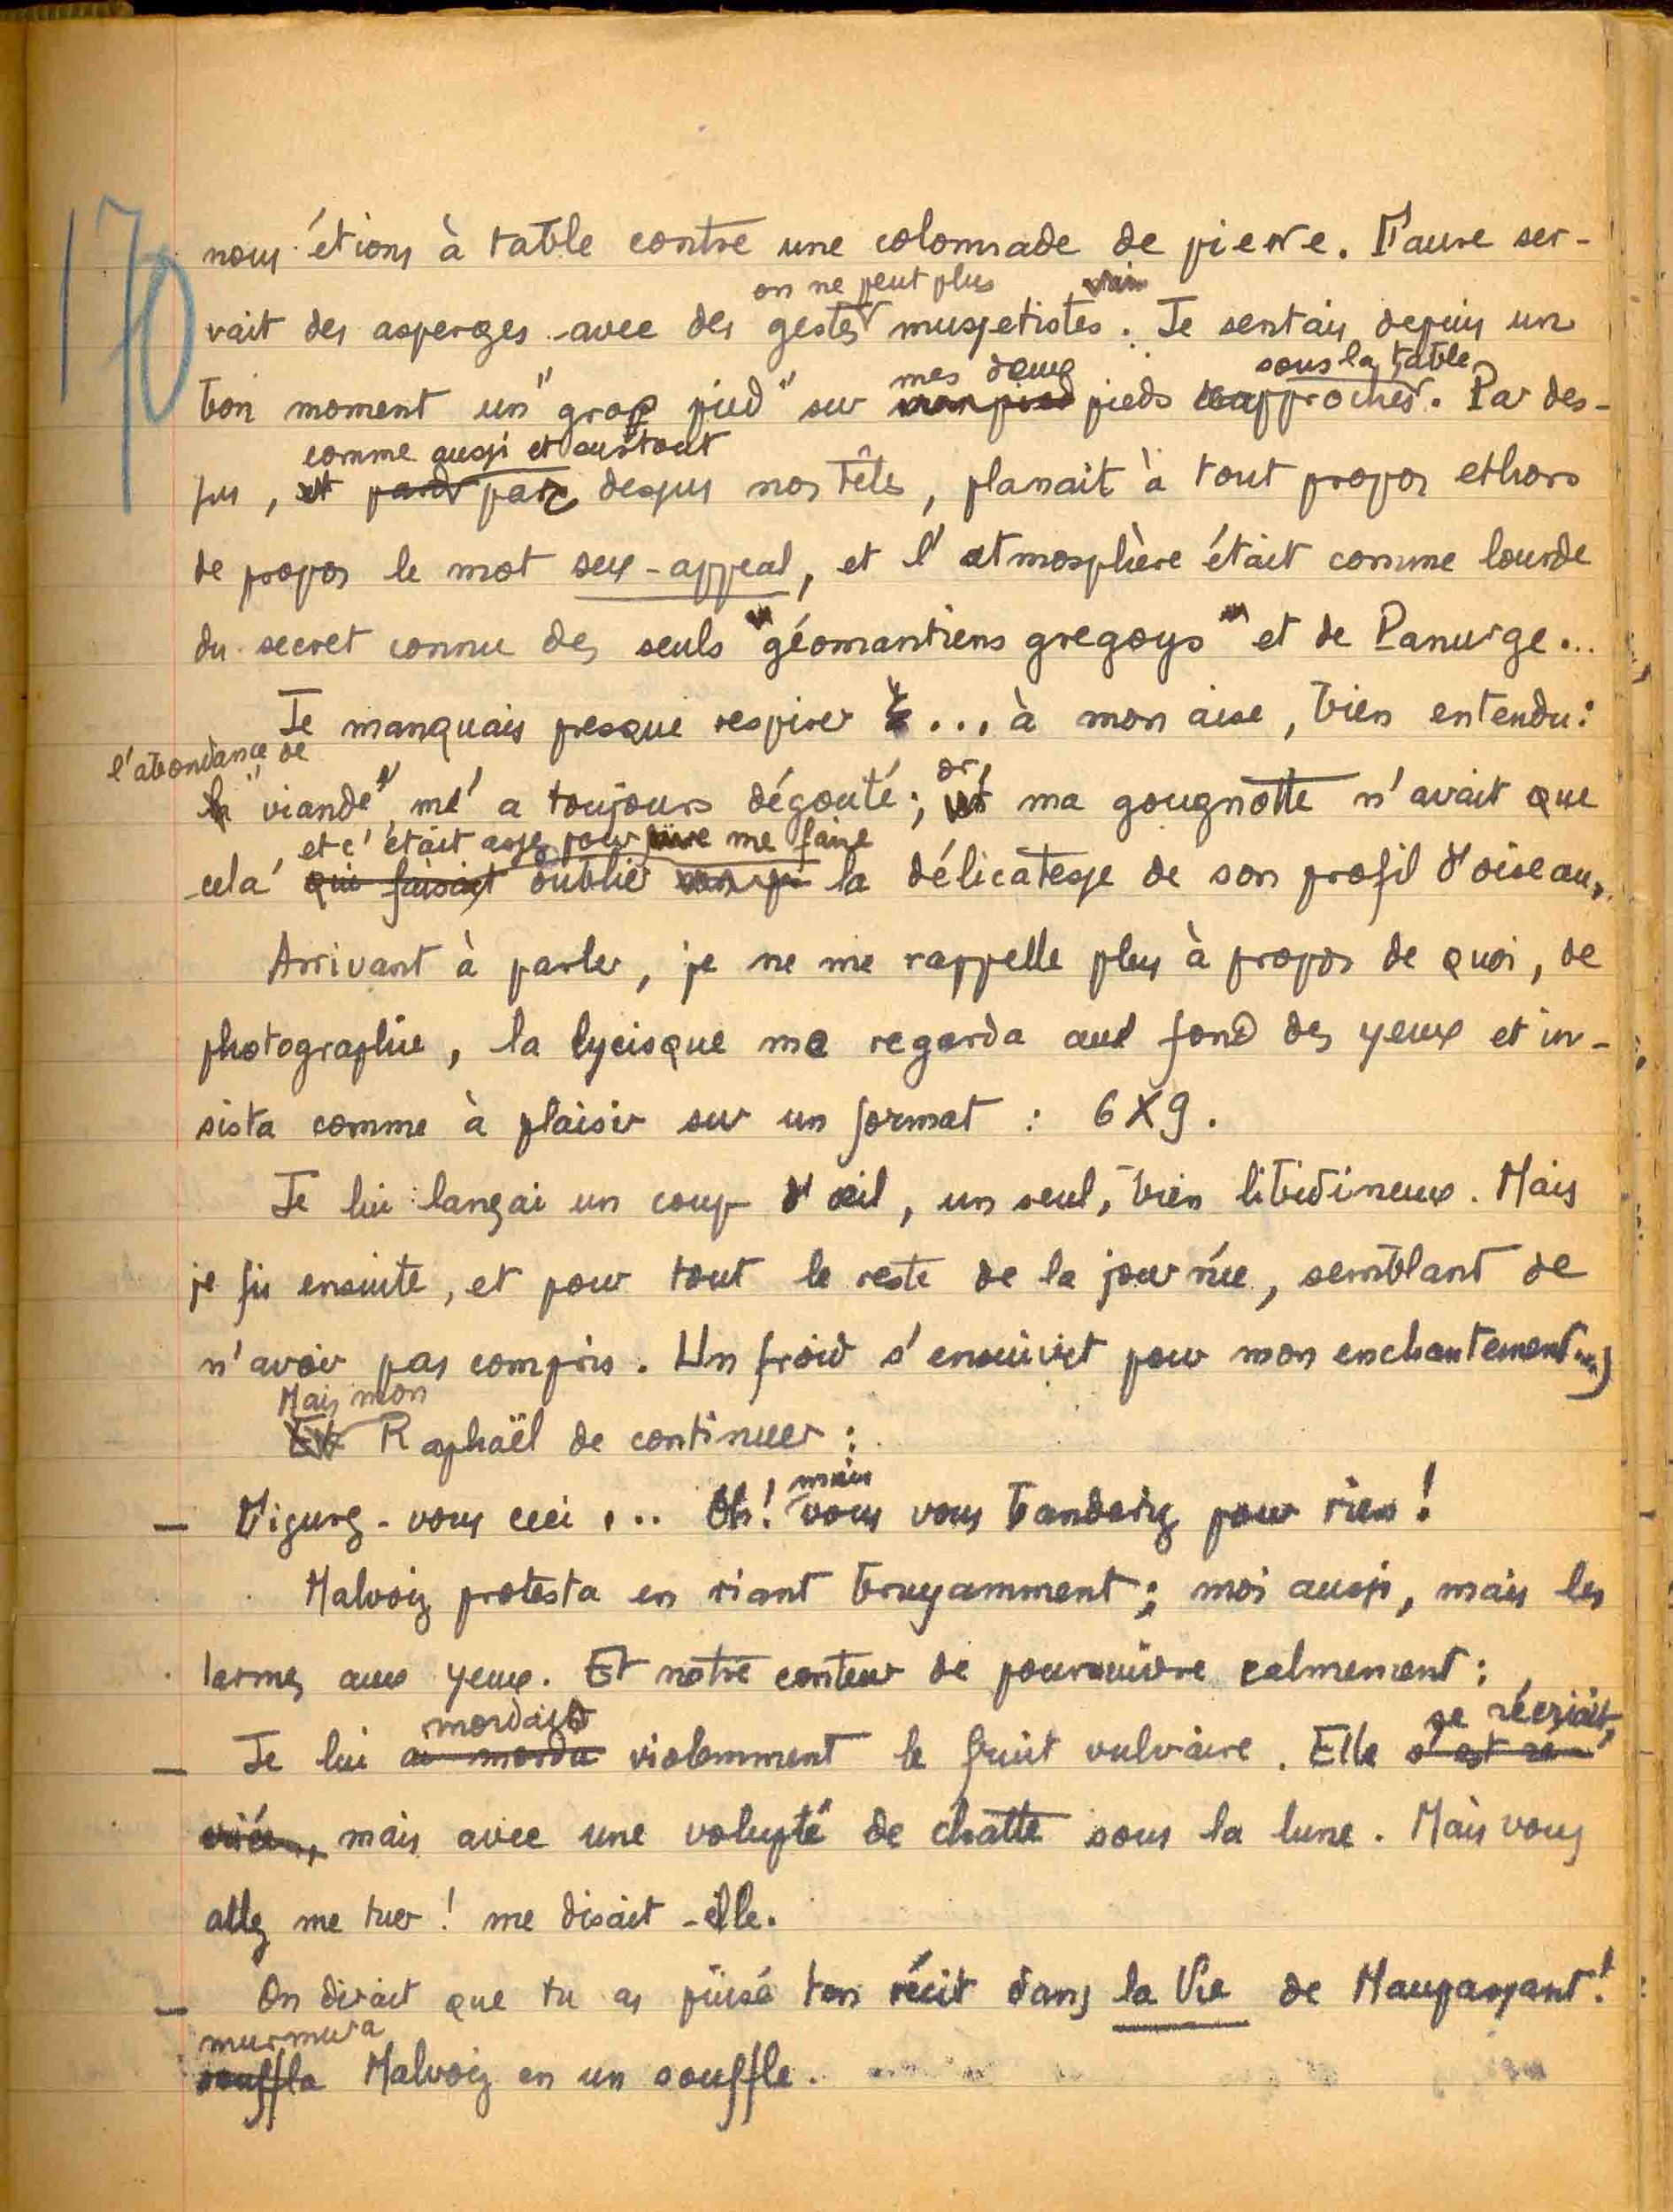 170
nous étions à table contre une colonnade de pierre. Faure ser-
on ne peut plus
vait des asperges avec des gestes mussetistes. Je sentais depuis un
mes deux sous la table
bon moment un "gros pied" sur pieds rapprochés. Par des-
comme aussi et surtout
sus, et par dessus nos têtes, planait à tout propos et hors
de propos le mot sex-appeal, et l'atmosphère était comme lourde
du secret connu des seuls "géomantiens gregoys" et de Panurge...
Je manquais presque respirer ... à mon aise, bien entendu :
l'abondance de or,
la "viande" m'a toujours dégouté ; et ma gougnotte n'avait que
et c'était assez pour me faire
cela qui faisait oublier la délicatesse de son profil d'oiseau.
Arrivant à parler, je ne me rappelle plus à propos de quoi, de
photographie, la lycisque me regarda au fond des yeux et in-
sista comme à plaisir sur un format : 6X9.
Je lui lançai un coup d'œil, un seul, bien libidineux. Mais
je fis ensuite, et pour tout le reste de la journée, semblant de
n'avoir pas compris. Un froid s'ensuivit pour mon enchantement...
Mais mon
Et Raphaël de continuer :
mais
— Figurez-vous ceci ... Oh! vous vous bandez pour rien !
Malvoiz protesta en riant bruyamment ; moi aussi, mais les
larmes aux yeux. Et notre conteur de poursuivre calmement :
mordais se récriait,
— Je lui ai mordu violemment le fruit vulvaire. Elle s'est ré-
criée, mais avec une volupté de chatte sous la lune. Mais vous
allez me tuer ! me disait-elle.
— On dirait que tu as puisé ton récit dans la Vie de Maupassant !
murmura
souffla Malvoiz en un souffle.